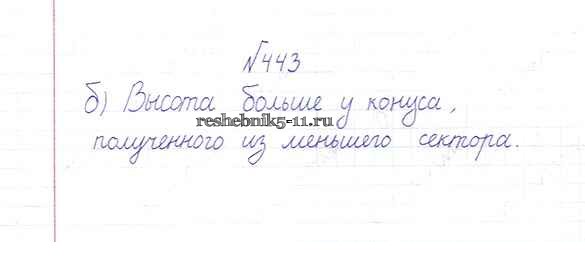 №443
б) Высота больше у конуса,
reshebnik5-11.ru
полученного из меньшего сектора.